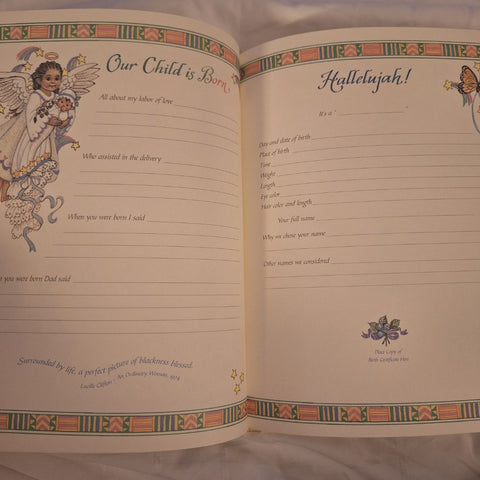 Our Child is Born
All about my labor of love
Who assisted in the delivery
When you were born I said
you were born Dad said
Surrounded by life, a perfect picture of blackness blessed.
Lucille Clifton - An Ordinary Woman, 1974
Hallelujah!
It's a " "
Day and date of birth
Place of birth
Time
Weight
Length
Eye color
Hair color and length
Your full name
Why we chose your name
Other names we considered
Place Copy of
Birth Certificate Here